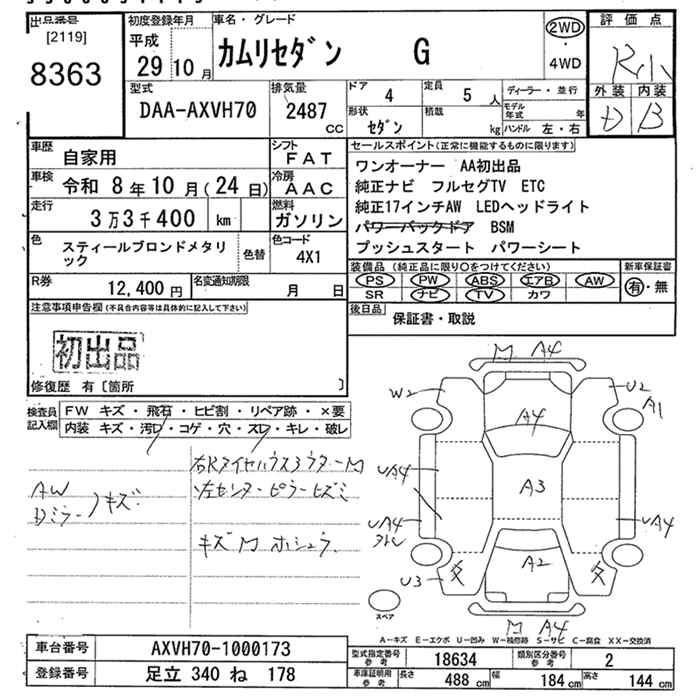 出品番号
[2119]
8363
初度登録年月
平成
29 10 月
車名・グレード
カムリセダン G
2WD
・
4WD
評価点
R小
外装 内装
D B
型式
DAA-AXVH70
排気量
2487
CC
ドア
4
定員
5 人
形状
セダン
積載
kg
ディーラー・並行
モデル年式 年
ハンドル 左・右
車歴
自家用
シフト
FAT
車検
令和 8年10月(24日)
冷房
AAC
走行
3万3千400 km
燃料
ガソリン
色
スティールブロンドメタリ
ック
色替
色コード
4X1
R券
12,400 円
名変通知期限
月 日
セールスポイント(正常に機能するものに限ります)
ワンオーナー AA初出品
純正ナビ フルセグTV ETC
純正17インチAW LEDヘッドライト
パワーバックドア BSM
プッシュスタート パワーシート
装備品(純正品に限り○をつけてください)
PS PW ABS エアB AW
SR ナビ TV カワ
新車保証書
有・無
後日品
保証書・取説
注意事項申告欄(不具合内容等は具体的に記入して下さい)
初出品
修復歴 有〔箇所 〕
検査員
記入欄
FW キズ・飛石・ヒビ割・リペア跡・×要
内装 キズ・汚レ・コゲ・穴・スレ・キレ・破レ
AW
Dミラー
キズ
右Rタイヤハウス
M
左センターピラーヒズミ
キズ M ホシュウ
M A4
W2
U2
A1
A4
UA4
A3
UA4
UA4
A2
U3
交
交
スペア
M A4
A-キズ E-エクボ U-凹み W-補修跡 S-サビ C-腐食 XX-交換済
車台番号
AXVH70-1000173
登録番号
足立 340 ね 178
型式指定番号
参考
18634
類別区分番号
参考
2
車庫証明用
参考
長さ 488 cm
幅 184 cm
高さ 144 cm